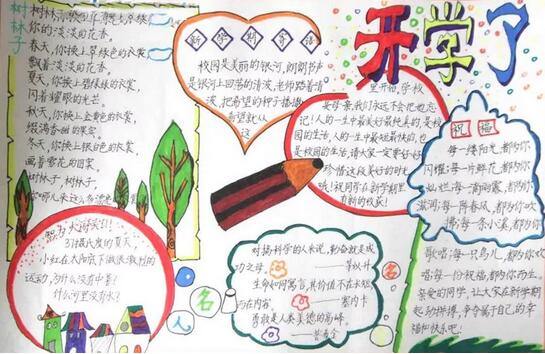 开学了
树林子
你的淡淡的花香。
春天,你换上翠绿色的衣裳
飘着淡淡的花香。
夏天,你换上碧绿的衣裳
闪着耀眼的光芒。
秋天,你换上金黄色的衣裳
缀满香甜的果实。
冬天,你换上银白色的衣裳
画着雪花的图案。
树林子,树林子,
新学期寄语
校园是美丽的银河,朗朗书声
是银河上回荡的清波,老师踏着
清波,把希望的种子播撒
希望就从
这
里开始,学校
是母亲,我们永远不会把她忘
记!人的一生中最美好最纯真的,是校
园的生活,人的一生中最短最快的,也
是校园的生活,请大家一定要好好
珍惜这段美好的时光
哦!祝同学在新学期里
有新的收获!
祝福
每一缕阳光,都为你
闪耀;每一片鲜花,都为你
灿烂;每一滴雨露,都为你
滋润;每一阵春风,都为你吹
拂;每一条小溪,都为你
歌唱;每一只鸟儿,都为你欢
唱;每一份祝福,都为你而去。
亲爱的同学,让大家在新学期
起劲拼搏,争夺属于自己的幸
福和快乐吧!
小红在太阳底下做很激烈的
运动,为什么没有中暑?
什么河里没有水?
名人名言
对搞科学的人来说,勤奋就是成
功之母。
——茅以升
生命如同寓言,其价值不在长短,
而在内容。
——塞内卡
勇敢是人类美德的高峰。